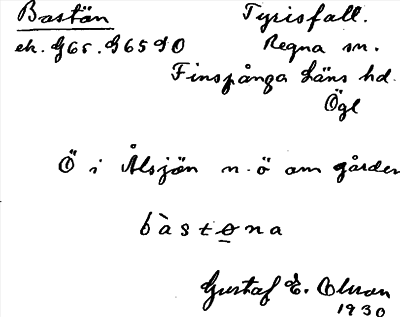 Bastön Tyrisfall.
ek. G65. G65 9 O Regna sn.
Finspånga läns hd.
Ögl
Ö i Ålsjön n. ö om gården
bàstɵna
Gustaf E. Olsson
1930